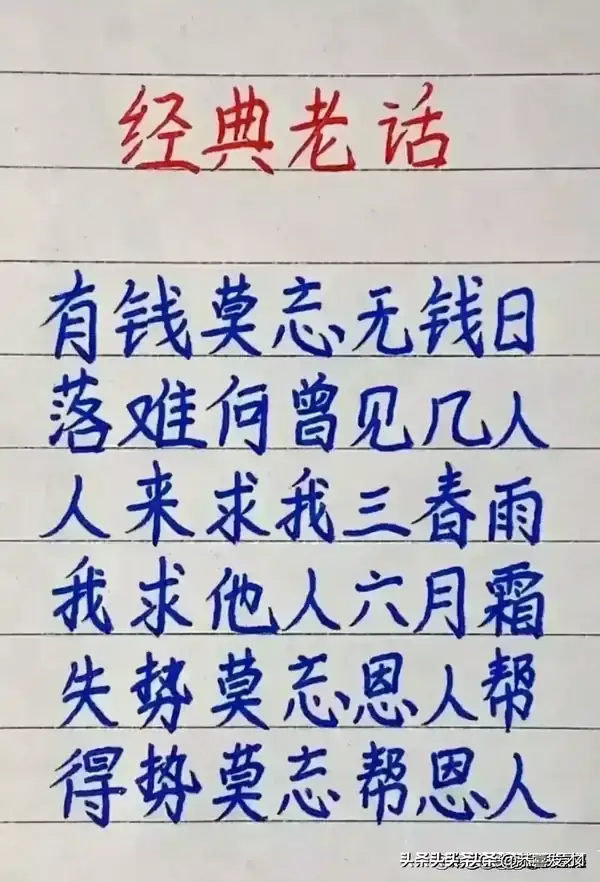 经典老话
有钱莫忘无钱日
落难何曾见几人
人来求我三春雨
我求他人六月霜
失势莫忘恩人帮
得势莫忘帮恩人